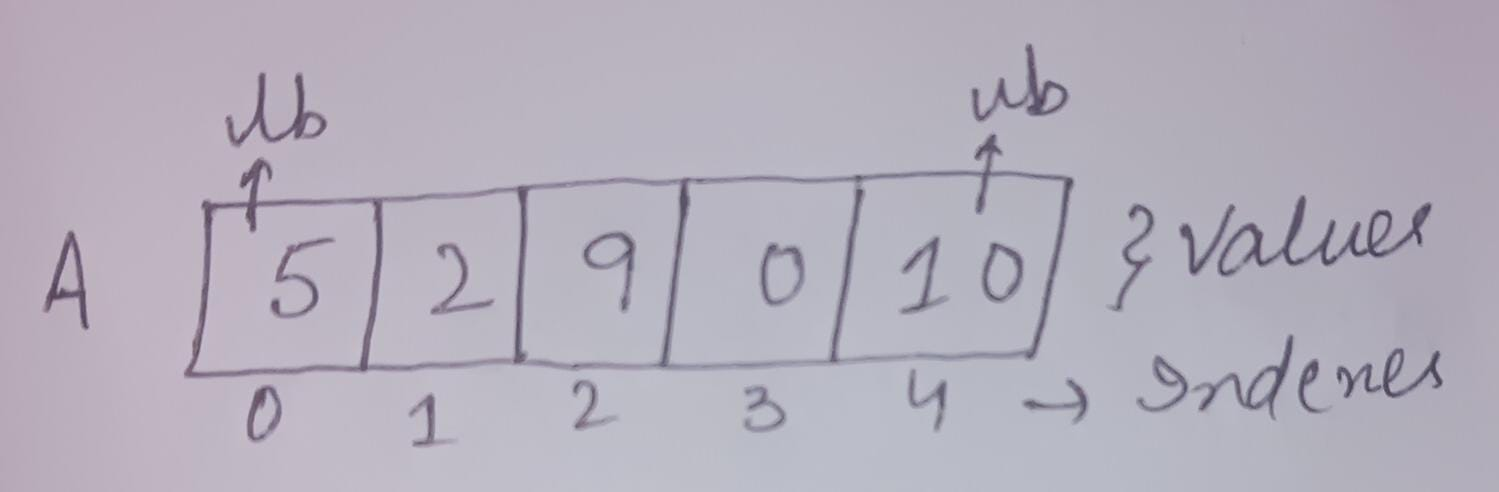 lb ub
A 5 2 9 0 10 } Values
0 1 2 3 4 → Indexes